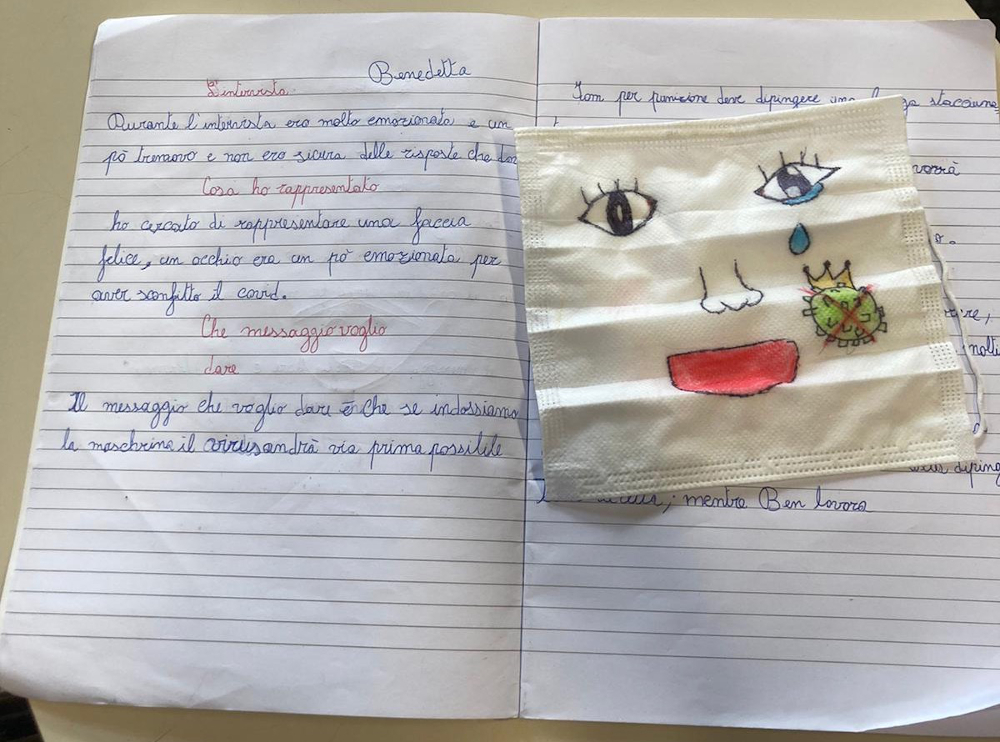 Benedetta
L'intervista.
Durante l'intervista ero molto emozionata e un
pò tremavo e non ero sicura delle risposte che
Cosa ho rappresentato
ho cercato di rappresentare una faccia
felice, un occhio era un pò emozionata per
aver sconfitto il covid.
Che messaggio voglio
dare
Il messaggio che voglio dare è che se indossiamo
la maschrine il virus andrà via prima possibile
Tom per punizione deve dipingere una staccion
vorrà
o.
inolti
diping
; mentre Ben lavora